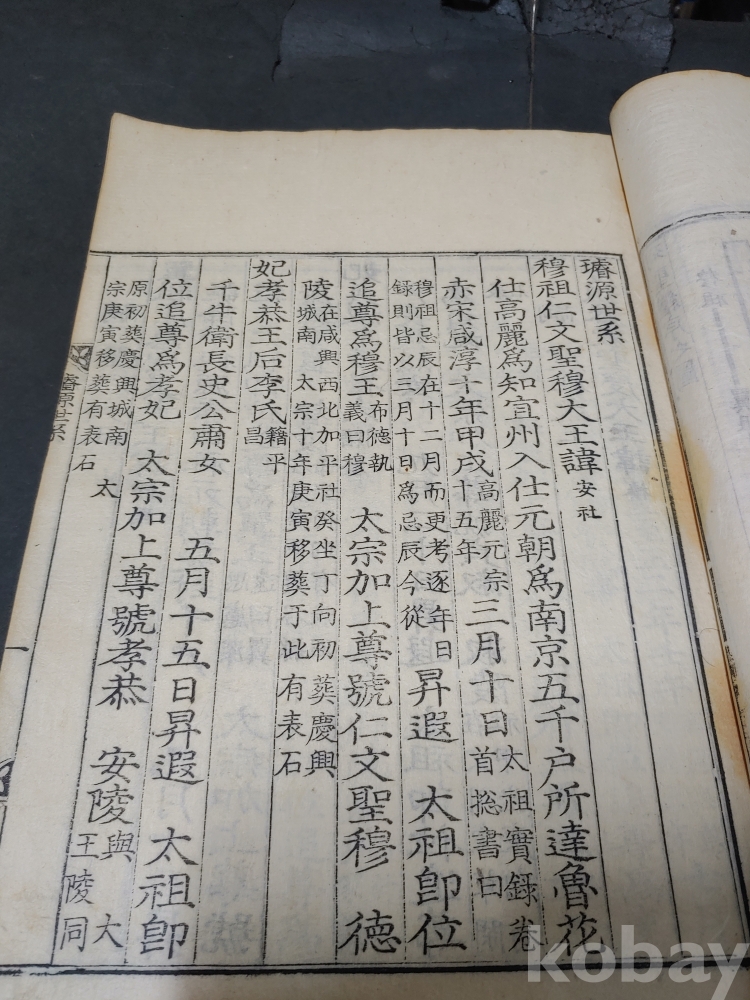 璿源世系
穆祖仁文聖穆大王諱安社
仕高麗爲知宜州入仕元朝爲南京五千户所達魯花
赤宋咸淳十年甲戌高麗元宗十五年三月十日太祖實録卷首捴書曰
穆祖忌辰在十二月而更考逐年日録則皆以三月十日爲忌辰今從昇遐 太祖卽位
追尊爲穆王布德執義曰穆 太宗加上尊號仁文聖穆 德
陵在咸興西北加平社癸坐丁向初葬慶興城南 太宗十年庚寅移葬于此有表石
妃孝恭王后李氏籍平昌
千牛衛長史公肅女 五月十五日昇遐 太祖卽
位追尊爲孝妃 太宗加上尊號孝恭 安陵與 大王陵同
原初葬慶興城南 太宗庚寅移葬有表石
璿源世系
一
kobay